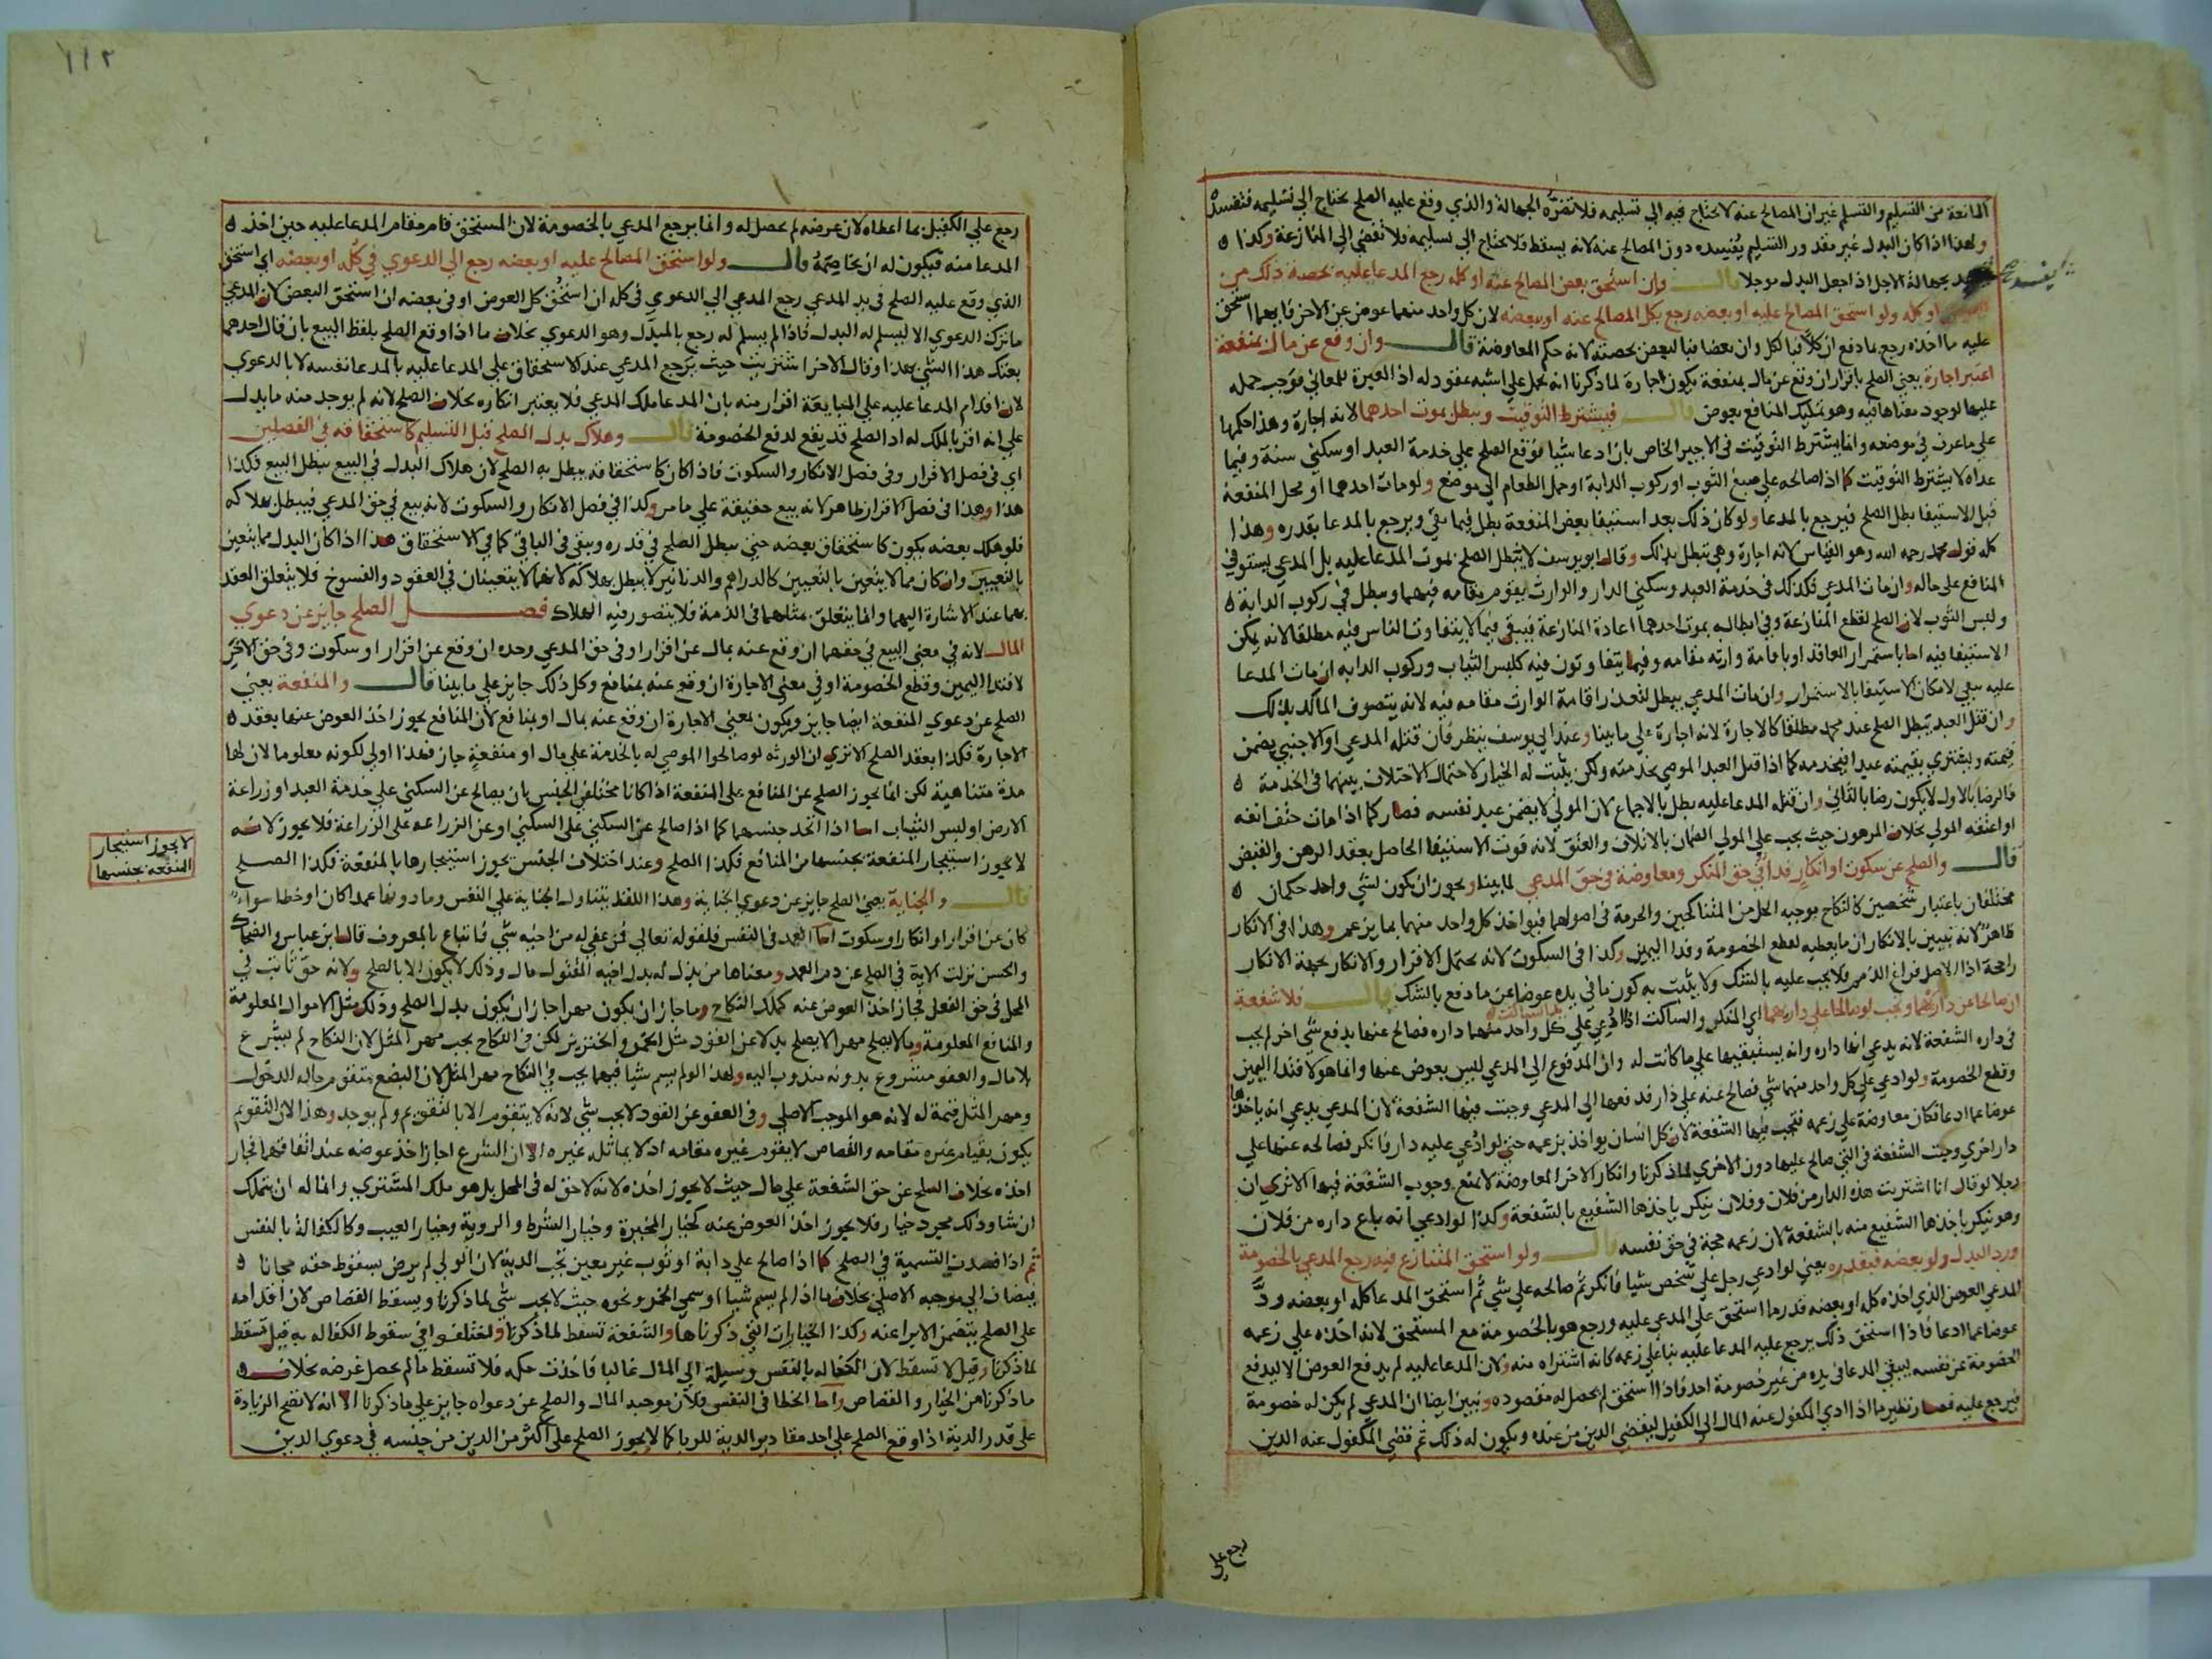 المانعة من التسليم والتسلم غير ان المصالح عنه لا يحتاج فيه الي تسليمه فلا تضره الجهالة والذي وقع عليه الصلح يحتاج الي تسليمه فتفسده
ولهذا اذا كان البدل غير مقدور التسليم يفسده دون المصالح عنه لانه يسقط فلا يحتاج الي تسليمه فلا تفضي الي المنازعة وكذا
يفسد بجهالة الاجل اذا جعل البدل موجلا قال وان استحق بعض المصالح عنه او كله رجع المدعا عليه بحصة ذلك من
العوض او كله ولو استحق المصالح عليه او بعضه رجع بكل المصالح عنه او بعضه لان كل واحد منهما عوض عن الاخر فايهما استحق
عليه ما اخذه رجع بما دفع ان كلا فبالكل وان بعضا فبالبعض بحصته لانه حكم المعاوضة قال وان وقع عن مال بمنفعة
اعتبر اجارة يعني الصلح باقرار ان وقع عن مال بمنفعة يكون اجارة لما ذكرنا انه يحمل علي اشبه عقود له اذ العبرة للمعاني فوجب حمله
عليها لوجود معناها فيه وهو تمليك المنافع بعوض قال فيشترط التوقيت ويبطل بموت احدهما لانه اجارة وهذا حكمها
علي ما عرف في موضعه وانما يشترط التوقيت في الاجير الخاص بان ادعا شيا فوقع الصلح علي خدمة العبد او سكني سنة وفيما
عداه لا يشترط التوقيت كما اذا صالحه علي صبغ الثوب او ركوب الدابة او حمل الطعام الي موضع ولو مات احدهما او محل المنفعة
قبل الاستيفا بطل الصلح فيرجع بالمدعا ولو كان ذلك بعد استيفا بعض المنفعة بطل فيما بقي ويرجع بالمدعا بقدره وهذا
كله قول محمد رحمه الله وهو القياس لانه اجارة وهي تبطل بذلك وقال ابو يوسف لا يبطل الصلح بموت المدعا عليه بل المدعي يستوفي
المنافع علي حاله وان مات المدعي فكذلك في خدمة العبد وسكني الدار والوارث يقوم مقامه فيهما ويبطل في ركوب الدابة
ولبس الثوب لان الصلح لقطع المنازعة وفي ابطاله بموت احدهما اعادة المنازعة فيبقي فيما لا يتفاوت الناس فيه مطلقا لانه يمكن
الاستيفا فيه اما باستمرار العاقد او باقامة وارثه مقامه وفيما يتفاوتون فيه كلبس الثياب وركوب الدابه ان مات المدعا
عليه يبقي لامكان الاستيفا بالاستمرار وان مات المدعي يبطل لتعذر اقامة الوارث مقامه فيه لانه يتصرف المالك بذلك
وان قتل العبد يبطل الصلح عند محمد مطلقا كالاجارة لانه اجارة علي ما بينا وعند ابي يوسف ينظر فان قتله المدعي او الاجنبي يضمن
قيمته ويشتري بقيمته عبدا فيخدمه كما اذا قتل العبد الموصي بخدمته ولكن يثبت له الخيار لاحتمال الاختلاف بينهما في الخدمة
فالرضا بالاول لا يكون رضا بالثاني وان قتله المدعا عليه بطل بالاجماع لان المولي لا يضمن عبد نفسه فصار كما اذا مات حتف انفه
او اعتقه المولي بخلاف المرهون حيث يجب علي المولي الضمان بالاتلاف والعتق لانه فوت الاستيفا الحاصل بعقد الرهن والقبض
قال والصلح عن سكوت او انكار فدا في حق المنكر ومعاوضة في حق المدعي لما بينا ويجوز ان يكون لشي واحد حكمان
مختلفان باعتبار شخصين كالنكاح موجبه الحل من المتناكحين والحرمة في اصولهما فيواخذ كل واحد منهما بما يزعم وهذا في الانكار
ظاهر لانه تبين بالانكار ان ما يعطيه لقطع الخصومة وفدا اليمين وكذا في السكوت لانه يحتمل الاقرار والانكار بجهة الانكار
راجحة اذ الاصل فراغ الذمم فلا يجب عليه بالشك ولا يثبت به كون ما في يده عوضا عن ما دفع بالشك قال فلا شفعة
ان صالحا عن دارهما وتجب لو صالحا علي دارهما اي المنكر والساكت اذا ادعي علي كل واحد منهما داره فصالح عنها بدفع شي اخر لم يجب
في داره الشفعة لانه يدعي انها داره وانه يستبقيها علي ما كانت له وان المدفوع الي المدعي ليس بعوض عنها وانما هو لافتدا اليمين
وقطع الخصومة ولو ادعي علي كل واحد منهما شي فصالح عنه علي دار فدفعها الي المدعي وجبت فيها الشفعة لان المدعي يدعي انه ياخذها
عوضا عما ادعا فكان معاوضة علي زعمه فتجب فيها الشفعة لان كل انسان يواخذ بزعمه حتي لو ادعي عليه دار فانكر فصالحه عنها علي
دار اخري وجبت الشفعة في التي صالح عليها دون الاخري لما ذكرنا وانكار الاخر المعاوضة لا يمنع وجوب الشفعة فيها الا تري ان
رجلا لو قال انا اشتريت هذه الدار من فلان وفلان ينكر ياخذها الشفيع بالشفعة وكذا لو ادعي انه باع داره من فلان
وهو ينكر ياخذها الشفيع منه بالشفعة لان زعمه حجة في حق نفسه قال ولو استحق المتنازع فيه رجع المدعي بالخصومة
ورد البدل ولو بعضه فبقدره يعني لو ادعي رجل علي شخص شيا فانكر ثم صالحه علي شي ثم استحق المدعا كله او بعضه رد
المدعي العوض الذي اخذه كله او بعضه قدر ما استحق علي المدعي عليه ورجع هو بالخصومة مع المستحق لانه اخذه علي زعمه
عوضا عما ادعا فاذا استحق ذلك يرجع عليه المدعا عليه بنا علي زعمه كانه اشتراه منه ولان المدعا عليه لم يدفع العوض الا ليدفع
الخصومة عن نفسه ليبقي المدعا في يده من غير خصومة احد فاذا استحق لم يحصل له مقصوده وتبين ايضا ان المدعي لم يكن له خصومة
فيرجع عليه فصار نظير ما اذا ادي المكفول عنه المال الي الكفيل ليقضي الدين من عنده ويكون له ذلك ثم قضي المكفول عنه الدين
يفسد صح
رجع علي
١١٢
رجع علي الكفيل بما اعطاه لان غرضه لم يحصل له وانما يرجع المدعي بالخصومة لان المستحق قام مقام المدعا عليه حين اخذ
المدعا منه فيكون له ان يخاصمه قال ولو استحق المصالح عليه او بعضه رجع الي الدعوي في كله او بعضه اي استحق
الذي وقع عليه الصلح في يد المدعي رجع المدعي الي الدعوي في كله ان استحق كل العوض او في بعضه ان استحق البعض لان المدعي
ما ترك الدعوي الا ليسلم له البدل فاذا لم يسلم له رجع بالمبدل وهو الدعوي بخلاف ما اذا وقع الصلح بلفظ البيع بان قال احدهما
بعتك هذا الشي بهذا وقال الاخر اشتريت حيث يرجع المدعي عند الاستحقاق علي المدعا عليه بالمدعا نفسه لا بالدعوي
لان اقدام المدعا عليه علي المبايعة اقرار منه بان المدعا ملك المدعي فلا يعتبر انكاره بخلاف الصلح لانه لم يوجد منه ما يدل
علي انه اقر بالملك له اذ الصلح قد يقع لدفع الخصومة قال وهلاك بدل الصلح قبل التسليم كاستحقاقه في الفصلين
اي في فصل الاقرار وفي فصل الانكار والسكوت فاذا كان كاستحقاقه يبطل به الصلح لان هلاك البدل في البيع يبطل البيع فكذا
هذا وهذا في فصل الاقرار ظاهر لانه بيع حقيقة علي ما مر وكذا في فصل الانكار والسكوت لانه بيع في حق المدعي فيبطل بهلاكه
فلو هلك بعضه يكون كاستحقاق بعضه حتي يبطل الصلح في قدره ويبقي في الباقي كما في الاستحقاق هذا اذا كان البدل مما يتعين
بالتعيين وان كان مما لا يتعين بالتعيين كالدراهم والدنانير لا يبطل بهلاكه لانهما لا يتعينان في العقود والفسوخ فلا يتعلق العقد
بهما عند الاشارة اليهما وانما يتعلق بمثلهما في الذمة فلا يتصور فيه الهلاك فصل الصلح جايز عن دعوي
المال لانه في معني البيع في حقهما ان وقع عنه بمال عن اقرار او في حق المدعي وحده ان وقع عن اقرار او سكوت وفي حق الاخر
لافتدا اليمين وقطع الخصومة او في معني الاجارة ان وقع عنه بمنافع وكل ذلك جايز علي ما بينا قال والمنفعة يعني
الصلح عن دعوي المنفعة ايضا جايز ويكون بمعني الاجارة ان وقع عنه بمال او بمنافع لان المنافع يجوز اخذ العوض عنها بعقد
الاجارة فكذا بعقد الصلح الا تري ان الورثه لو صالحوا الموصي له بالخدمة علي مال او منفعة جاز فهذا اولي لكونه معلوما لان لها
مدة متناهية لكن انما يجوز الصلح عن المنافع علي المنفعة اذا كانا مختلفي الجنس بان يصالح عن السكني علي خدمة العبد او زراعة
الارض او لبس الثياب اما اذا اتحد جنسهما كما اذا صالح عن السكني علي السكني او عن الزراعه علي الزراعة فلا يجوز لانه
لا يجوز استيجار المنفعة بجنسها من المنافع فكذا الصلح وعند اختلاف الجنس يجوز استيجارها بالمنفعة فكذا الصلح
قال والجناية يعني الصلح جايز عن دعوي الجناية وهذا اللفظ يتناول الجناية علي النفس وما دونها عمدا كان او خطا سواء
كان عن اقرار او انكار او سكوت اما العمد في النفس فلقوله تعالي فمن عفي له من اخيه شي فاتباع بالمعروف قال ابن عباس والضحاك
والحسن نزلت الاية في الصلح عن دم العمد ومعناها من بذل له بدل اخيه المقتول مال وذلك لا يكون الا بالصلح ولانه حق ثابت في
المحل في حق الفعل فجاز اخذ العوض عنه كملك النكاح وما جاز ان يكون مهرا جاز ان يكون بدل الصلح وذلك مثل الاموال المعلومة
والمنافع المعلومة وما لا يصلح مهرا لا يصلح بدلا عن القود مثل الخمر والخنزير لكن في النكاح يجب مهر المثل لان النكاح لم يشرع
بلا مال والعفو مشروع بدونه مندوب اليه ولهذا لو لم يسم شيا فيهما يجب في النكاح مهر المثل لان البضع متقوم حاله الدخول
ومهر المثل قيمة له لانه هو الموجب الاصلي وفي العفو عن القود لا يجب شي لانه لا يتقوم الا بالتقويم ولم يوجد وهذا لان التقويم
يكون بقيام غيره مقامه والقصاص لا يقوم غيره مقامه اذ لا يماثله غيره الا ان الشرع اجاز اخذ عوضه عند اتفاقهما فجاز
اخذه بخلاف الصلح عن حق الشفعة علي مال حيث لا يجوز اخذه لانه لا حق له في المحل بل هو ملك المشتري وانما له ان يتملك
ان شا وذلك مجرد خيار فلا يجوز اخذ العوض عنه كخيار المخيرة وخيار الشرط والروية وخيار العيب وكالكفالة بالنفس
ثم اذا فسدت التسمية في الصلح كما اذا صالح علي دابة او ثوب غير معين تجب الدية لان الولي لم يرض بسقوط حقه مجانا
فيضاف الي موجبه الاصلي بخلاف ما اذا لم يسم شيا او سمي الخمر ونحوه حيث لا يجب شي لما ذكرنا ويسقط القصاص لان اقدامه
علي الصلح يتضمن الابرا عنه وكذا الخيارات التي ذكرناها والشفعة تسقط لما ذكرنا واختلفوا في سقوط الكفاله به قيل تسقط
لما ذكرنا وقيل لا تسقط لان الكفاله بالنفس وسيلة الي المال غالبا فاخذت حكمه فلا تسقط ما لم يحصل غرضه بخلاف
ما ذكرنا من الخيار والقصاص واما الخطا في النفس فلان موجبه المال والصلح عن دعواه جايز علي ما ذكرنا الا انه لا تصح الزيادة
علي قدر الدية اذا وقع الصلح علي احد مقادير الدية للربا كما لا يجوز الصلح علي اكثر من الدين من جنسه في دعوي الدين
لا يجوز استيجار
المنفعة بجنسها